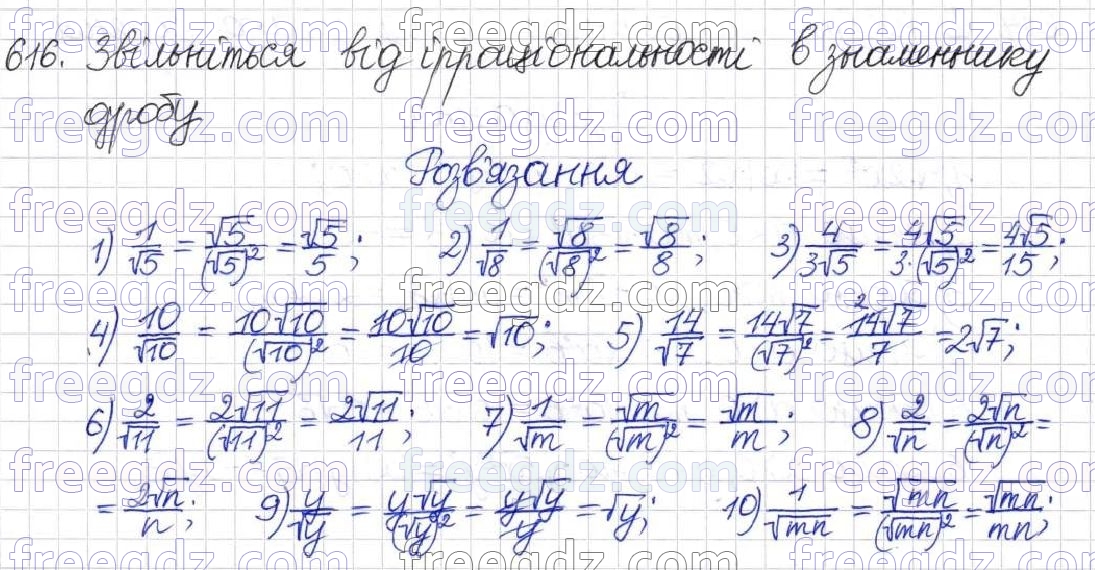 616. Звільніться від ірраціональності в знаменнику
дробу
Розв'язання
1) 1/√5 = √5/(√5)² = √5/5; 2) 1/√8 = √8/(√8)² = √8/8; 3) 4/3√5 = 4√5/3·(√5)² = 4√5/15;
4) 10/√10 = 10√10/(√10)² = 10√10/10 = √10; 5) 14/√7 = 14√7/(√7)² = ²14√7/7 = 2√7;
6) 2/√11 = 2√11/(√11)² = 2√11/11; 7) 1/√m = √m/(√m)² = √m/m; 8) 2/√n = 2√n/(√n)² =
= 2√n/n; 9) y/√y = y√y/(√y)² = y√y/y = √y; 10) 1/√mn = √mn/(√mn)² = √mn/mn;
freegdz.com freegdz.com freegdz.com